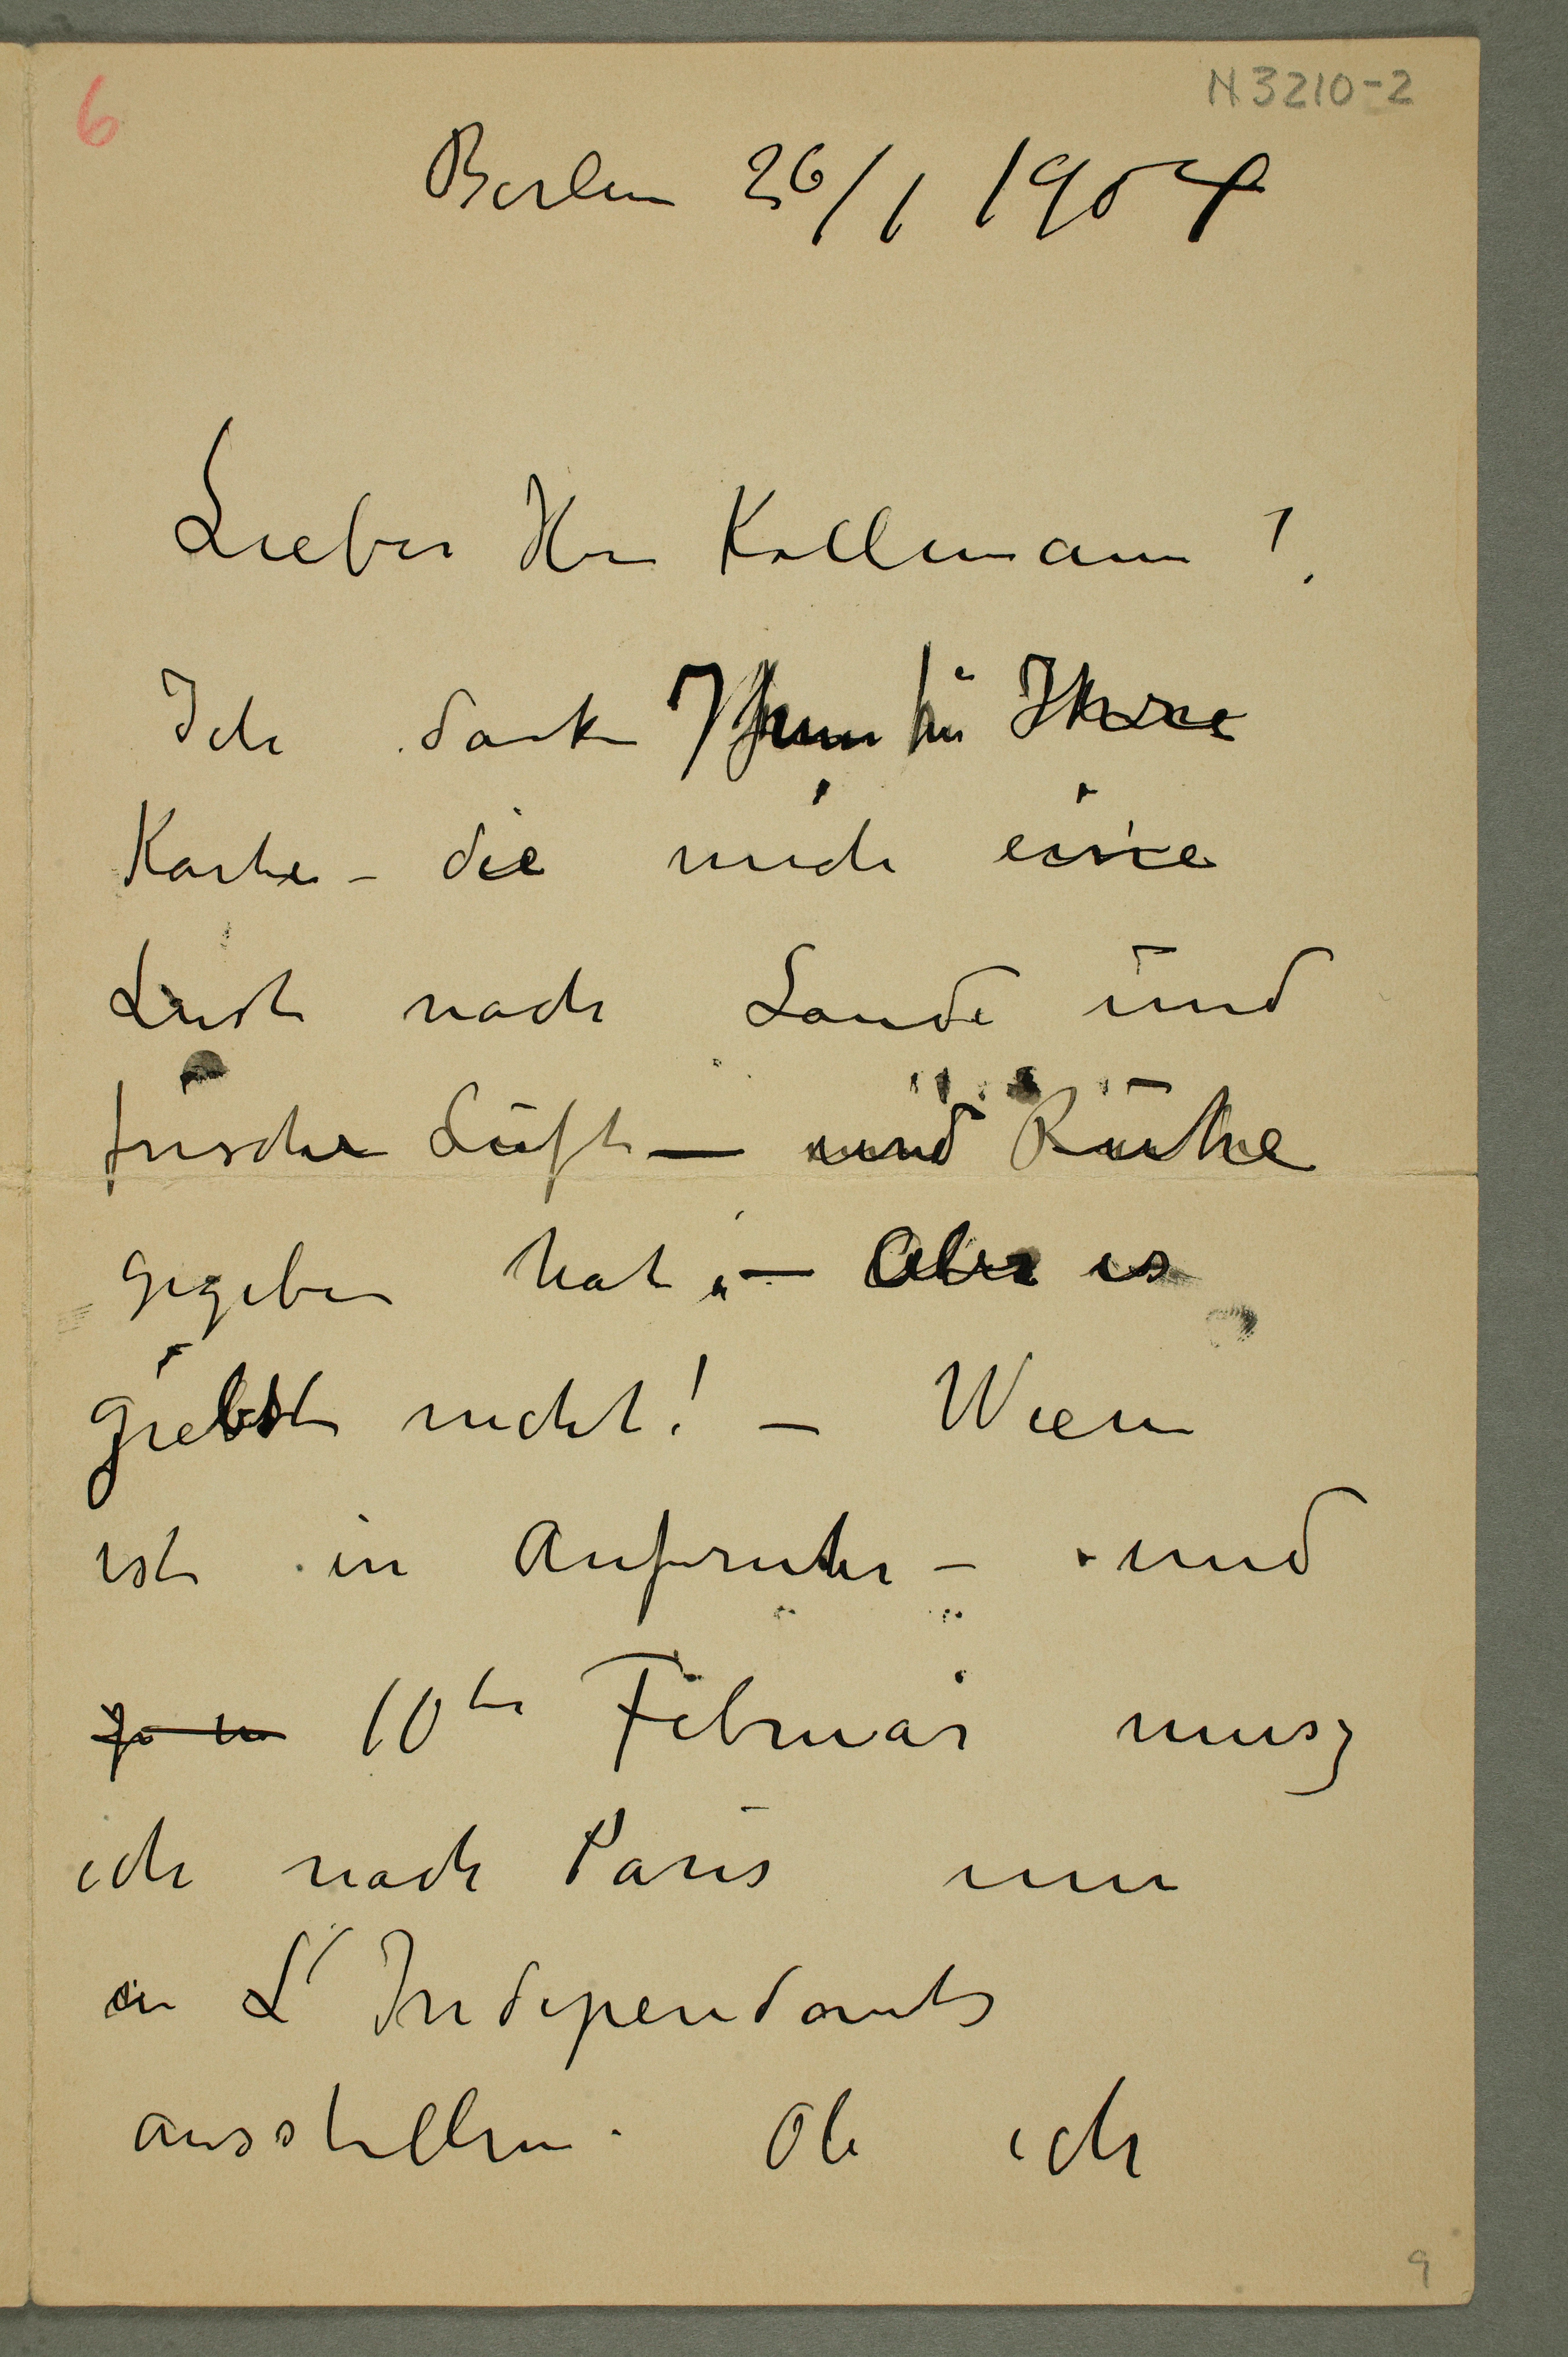 6
N 3210-2
Berlin 26/1 1904
Lieber Herr Kollmann!
Ich danke Ihnen für Ihre
Karte – die mich eine
Lust nach Lande und
frische Luft — und Ruhe
gegeben hat, — Aber es
giebt nicht! – Wien
ist in Aufruhr – und
10te Februar musz
ich nach Paris um
in L'Independants
ausstellen. Ob ich
9